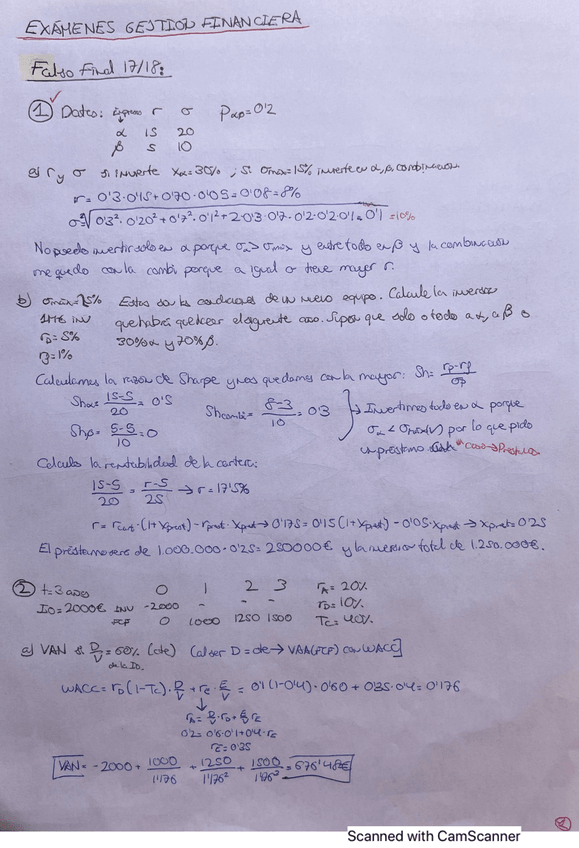 EXÁMENES GESTIÓN FINANCIERA
Falso Final 17/18:
① Datos: Empresa r σ ραβ=0'2
α 15 20
β 5 10
a) r y σ si invierte Xα=30% ; Si σmax=15% invierte en α, β, combinación.
r= 0'3·0'15+0'70·0'05=0'08=8%
σ=√0'3²·0'20²+0'7²·0'1²+2·0'3·0'7·0'2·0'2·0'1=0'1=10%
No puedo invertir solo en α porque σα>σmax y entre todo en β y la combinación
me quedo con la combi porque a igual σ tiene mayor r.
b) σmax=25% Estas son las condiciones de un nuevo equipo. Calcule la inversión
1M€ INV que habrá que hacer el siguiente caso. Supon que solo o todo a α, a β o
rD=5% 30%α y 70%β.
rB=1%
Calculamos la razón de Sharpe y nos quedamos con la mayor: Sh= rp-rf/σp
Shα= 15-5/20=0'5 Shcombi= 8-3/10=0'3 Invertimos todo en α porque
Shβ= 5-5/10=0 σα<σmax(v) por lo que pido
un préstamo *caso→Préstamo
Calculo la rentabilidad de la cartera:
15-5/20 = r-5/25 → r=17'5%
r= rcart·(1+Xprest)-rprest·Xprest→0'175=0'15(1+Xprest)-0'05·Xprest→Xprest=0'25
El préstamo será de 1.000.000·0'25=250000€ y la inversión total de 1.250.000€.
② t=3 años 0 1 2 3 rA=20%
I0=2000€ INV -2000 - - - rD=10%
FCF 0 1000 1250 1500 Tc=40%
a) VAN si D/V=60% (cte) (al ser D=cte→VAN(FCF) con WACC]
de la I0.
WACC= rD(1-Tc)·D/V+rE·E/V = 0'1(1-0'4)·0'60+0'35·0'4=0'176
rA=D/V·rD+E/V·rE
0'2=0'6·0'1+0'4·rE
rE=0'35
VAN= -2000+1000/1'176+1250/1'176²+1500/1'176³=676'48€
1
Scanned with CamScanner